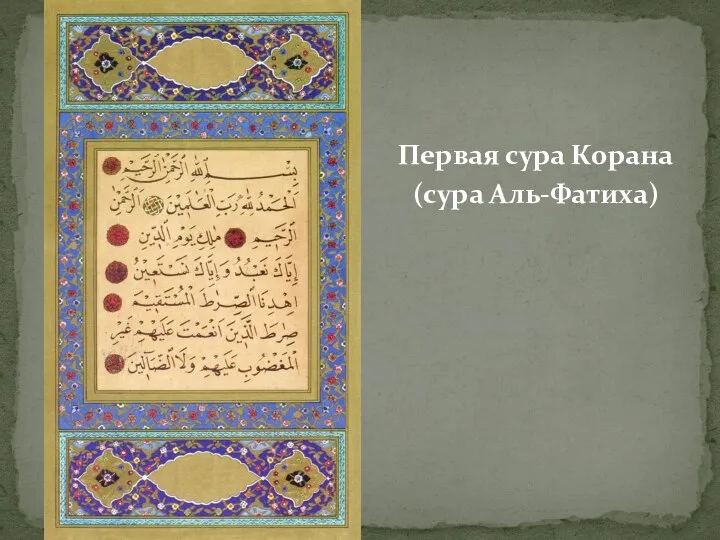 بِسْــــــمِ اللهِ الرَّحْمٰنِ الرَّحِيْمِ
اَلْحَمْدُ لِلّٰهِ رَبِّ الْعَالَمِيْنَ الرَّحْمٰنِ
الرَّحِيْمِ مٰلِكِ يَوْمِ الدِّيْنِ
اِيَّاكَ نَعْبُدُ وَاِيَّاكَ نَسْتَعِيْنُ
اِهْدِنَا الصِّرَاطَ الْمُسْتَقِيْمَ
صِرَاطَ الَّذِيْنَ اَنْعَمْتَ عَلَيْهِمْ غَيْرِ
الْمَغْضُوْبِ عَلَيْهِمْ وَلَا الضَّآلِّيْنَ
Первая сура Корана
(сура Аль-Фатиха)